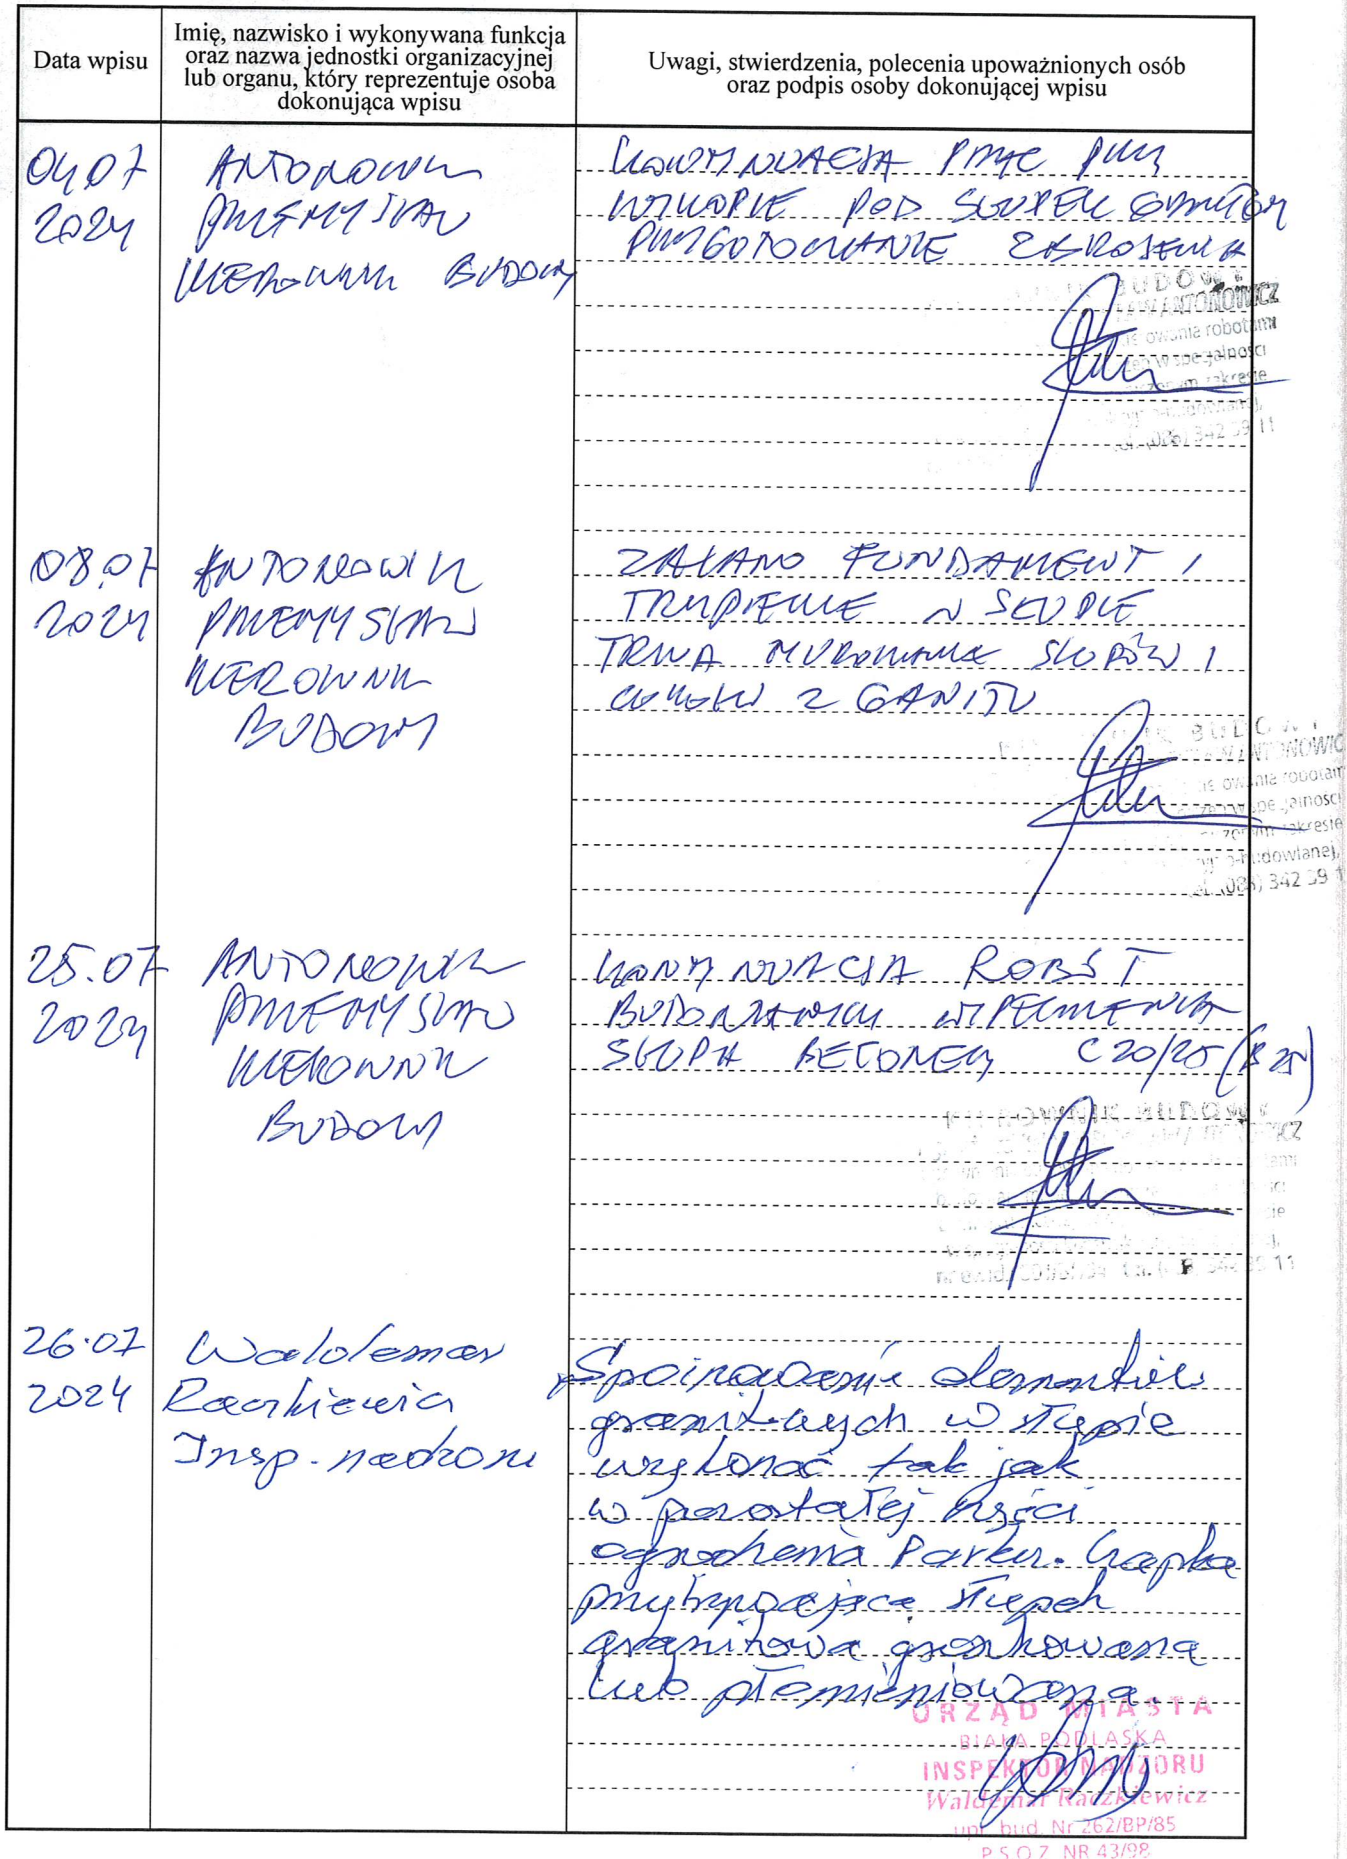 Data wpisu
Imię, nazwisko i wykonywana funkcja
oraz nazwa jednostki organizacyjnej
lub organu, który reprezentuje osoba
dokonująca wpisu
Uwagi, stwierdzenia, polecenia upoważnionych osób
oraz podpis osoby dokonującej wpisu
04.07
2024
ANTONOWICZ
PRZEMYSŁAW
KIEROWNIK BUDOWY
KONTYNUACJA PRAC PRZY
WYKOPIE POD SŁUPEK
PRZYGOTOWANIE ZBROJENIA
BUDOW
ANTONOWICZ
robotami
w specjalności
zakresie
342 39 11
08.07
2024
ANTONOWICZ
PRZEMYSŁAW
KIEROWNIK
BUDOWY
ZALANO FUNDAMENT I
W SŁUPIE
TRWA MUROWANIE SŁUPÓW I
Z GANITU
robotam
zakresie
budowlanej,
342 39 1
25.07
2024
ANTONOWICZ
PRZEMYSŁAW
KIEROWNIK
BUDOWY
KONTYNUACJA ROBÓT
BUDOWLANYCH WYPEŁNIENIA
SŁUPA BETONEM C 20/25 (B 25)
KIEROWNIK BUDOWY
26.07
2024
Waldemar
Raczkiewicz
Insp. nadzoru
Spoinowanie elementów
granitowych w słupie
wykonać tak jak
w pozostałej części
ogrodzenia Parku. Czapka
przykrywająca słupek
granitowa groszkowana
lub płomieniowana
URZĄD MIASTA
BIAŁA PODLASKA
INSPEKTOR NADZORU
Waldemar Raczkiewicz
upr. bud. Nr 262/BP/85
P.S.O.Z. NR 43/98